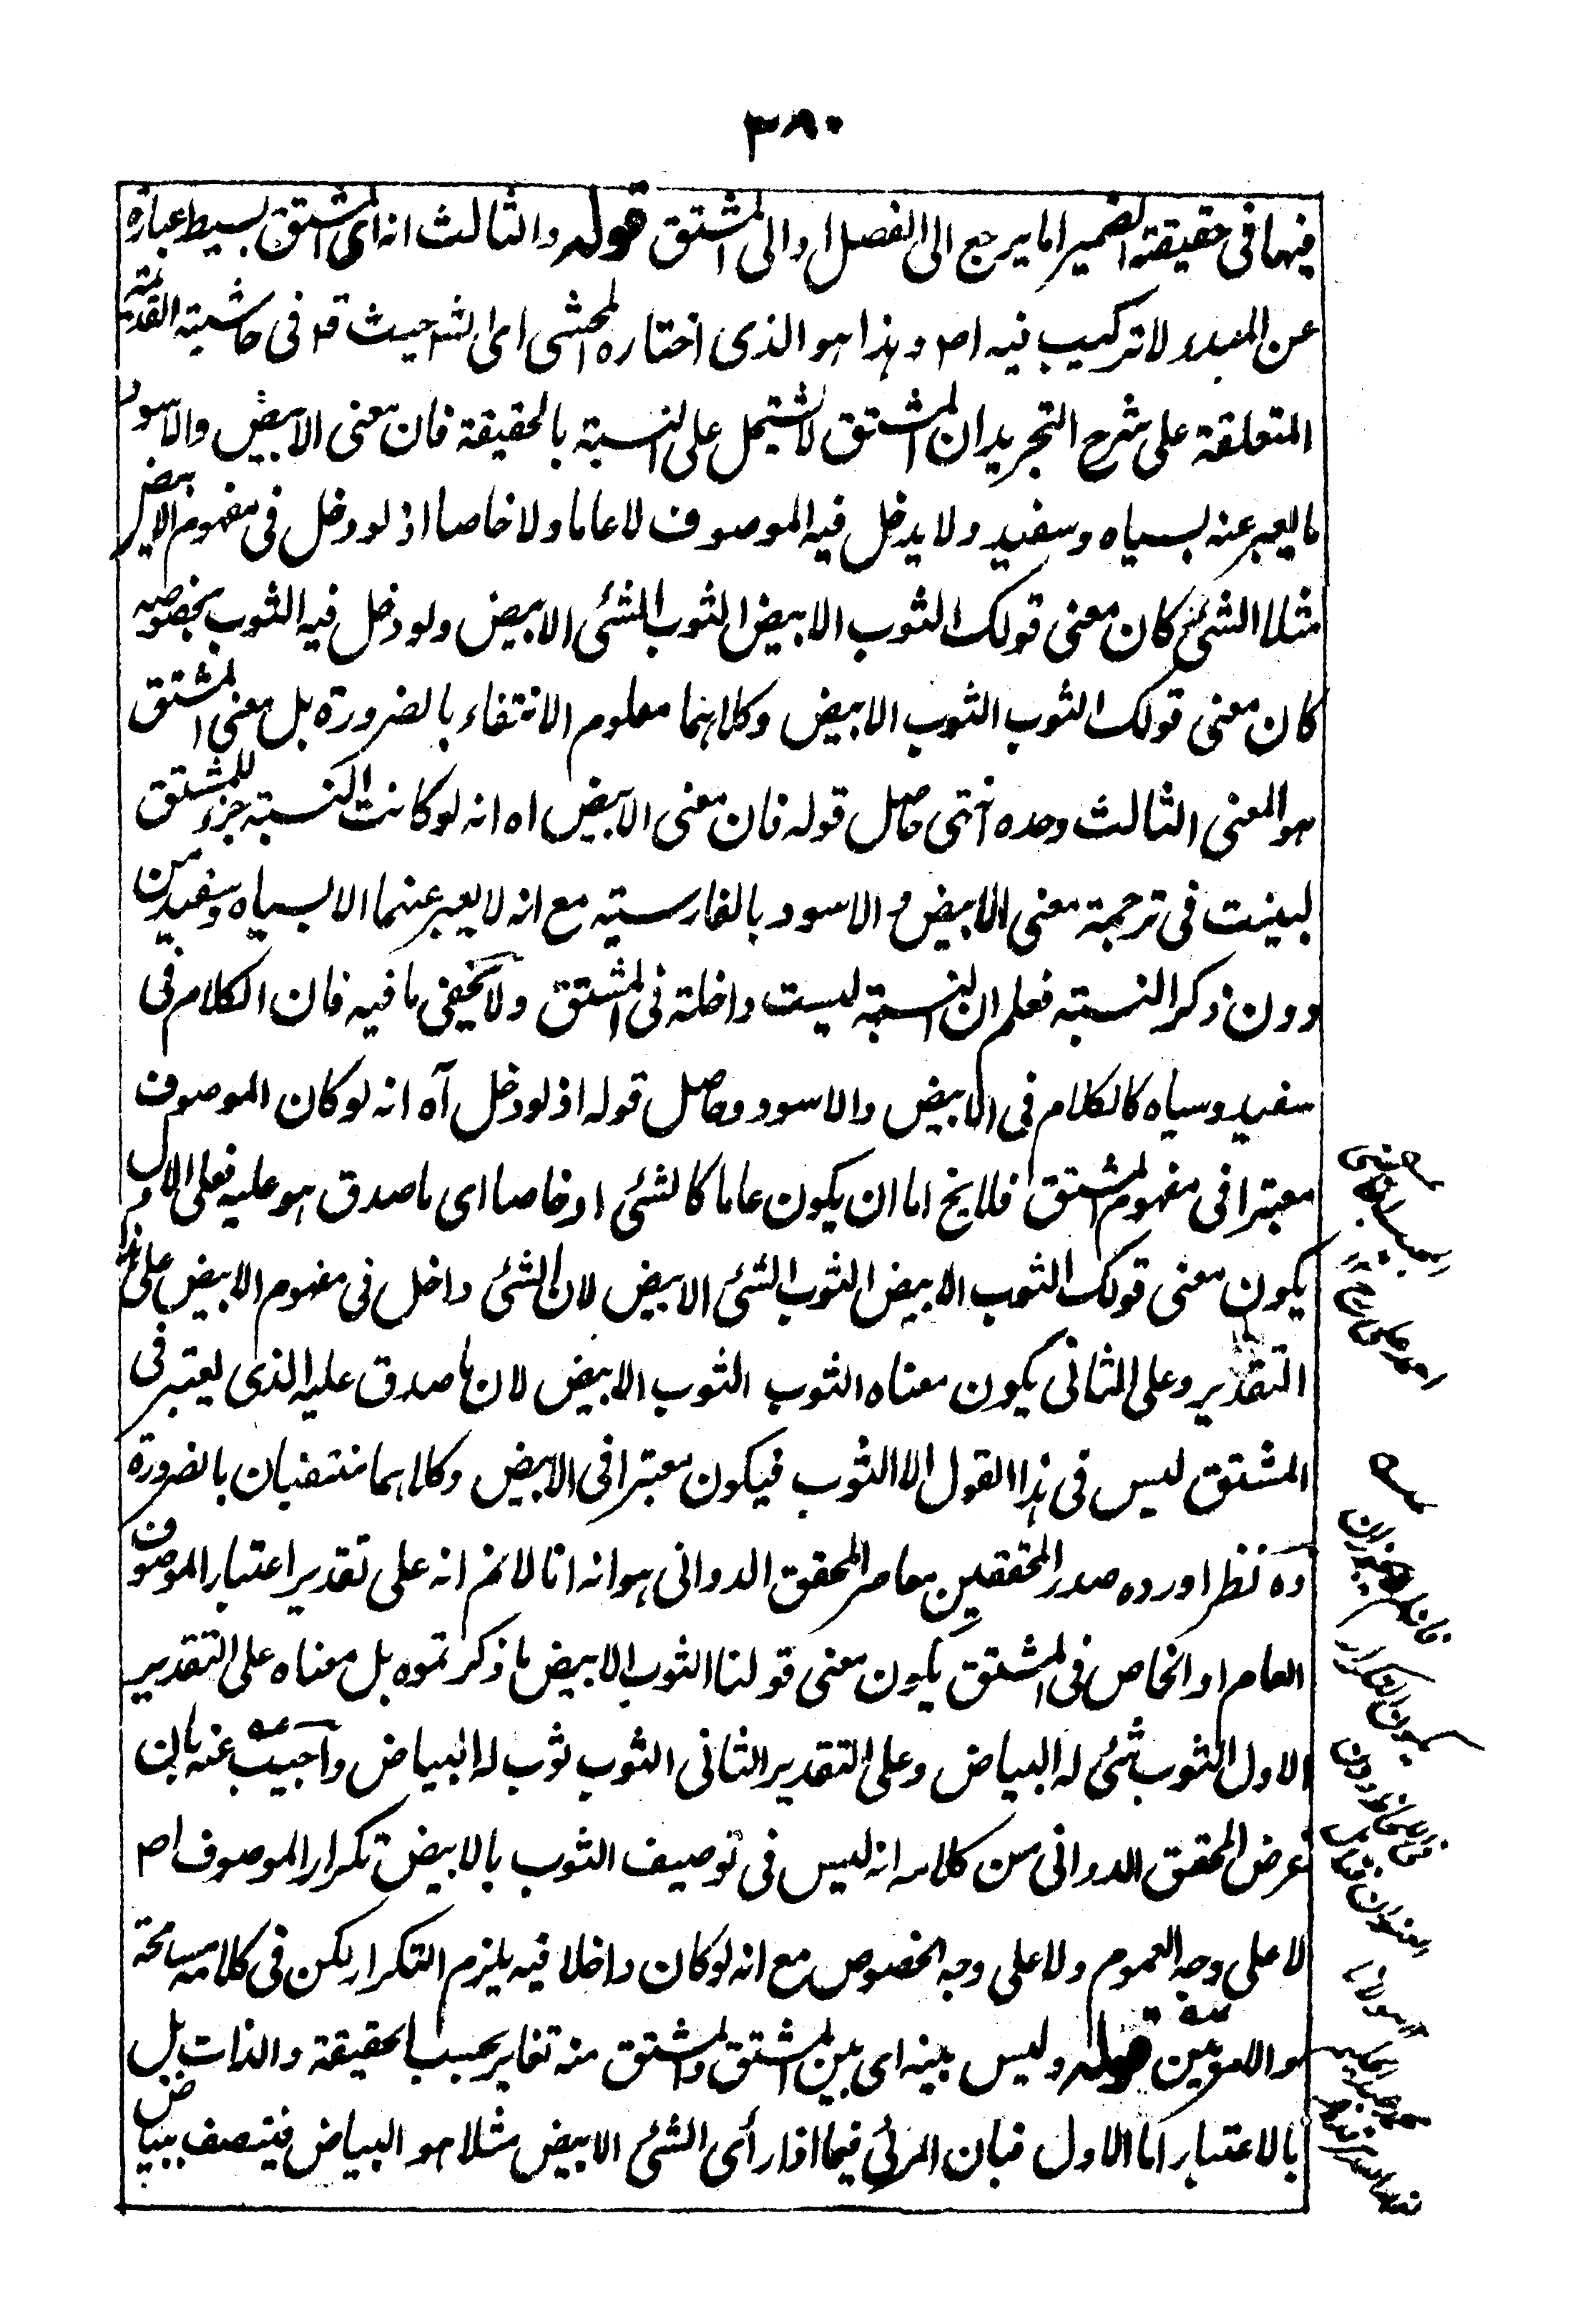 ٣٨٠
فيهما فى حقيقته الضمير اما يرجع الى الفصل او الى المشتق قوله والثالث انه اى المشتق بسيط عبارة
عن المبدء لا تركيب فيه اصـ وهذا هو الذى اختاره المحشى اى الشـ حيث قـ فى حاشيته القديمة
المتعلقة على شرح التجريد ان المشتق لا يشتمل على النسبة بالحقيقة فان معنى الابيض والاسود
ما يعبر عنه بسياه وسفيد ولا يدخل فيه الموصوف لا عاما ولا خاصا اذ لو دخل فى مفهوم الابيض
مثلا الشئ كان معنى قولك الثوب الابيض الثوب الشئ الابيض ولو دخل فيه الثوب بخصوصه
كان معنى قولك الثوب الثوب الابيض وكلاهما معلوم الانتفاء بالضرورة بل معنى المشتق
هو المعنى الثالث وحده انتهى حاصل قوله فان معنى الابيض اه انه لو كانت النسبة جزء للمشتق
لبينت فى ترجمة معنى الابيض والاسود بالفارسية مع انه لا يعبر عنهما الا بسياه وسفيد من
دون ذكر النسبة فعلم ان النسبة ليست داخلة فى المشتق ولا يخفى ما فيه فان الكلام فى
سفيد وسياه كالكلام فى الابيض والاسود وحاصل قوله اذ لو دخل آه انه لو كان الموصوف
معتبرا فى مفهوم المشتق فلا يخ اما ان يكون عاما كالشئ او خاصا اى ما صدق هو عليه فعلى الاول
يكون معنى قولك الثوب الابيض الثوب الشئ الابيض لان الشئ داخل فى مفهوم الابيض على هذا
التقدير وعلى الثانى يكون معناه الثوب الثوب الابيض لان ما صدق عليه الذى يعتبر فى
المشتق ليس فى هذا القول الا الثوب فيكون معتبرا فى الابيض وكلاهما منتفيان بالضرورة
وه نظر اورده صدر المحققين معاصر المحقق الدوانى هو انه انا لا نم انه على تقدير اعتبار الموصوف
العام او الخاص فى المشتق يكون معنى قولنا الثوب الابيض ما ذكرتموه بل معناه على التقدير
الاول الثوب شئ له البياض وعلى التقدير الثانى الثوب ثوب له البياض واجيب عنه بان
غرض المحقق الدوانى من كلامه انه ليس فى توصيف الثوب بالابيض تكرار الموصوف اصـ
لا على وجه العموم ولا على وجه الخصوص مع انه لو كان داخلا فيه يلزم التكرار لكن فى كلامه مسامحة
هو الامر بين قوله وليس بينه اى بين المشتق والمشتق منه تغاير بحسب الحقيقة والذات بل
بالاعتبار اما الاول فبان المرئى فيما اذا رأى الشئ الابيض مثلا هو البياض فيتصف ببياض